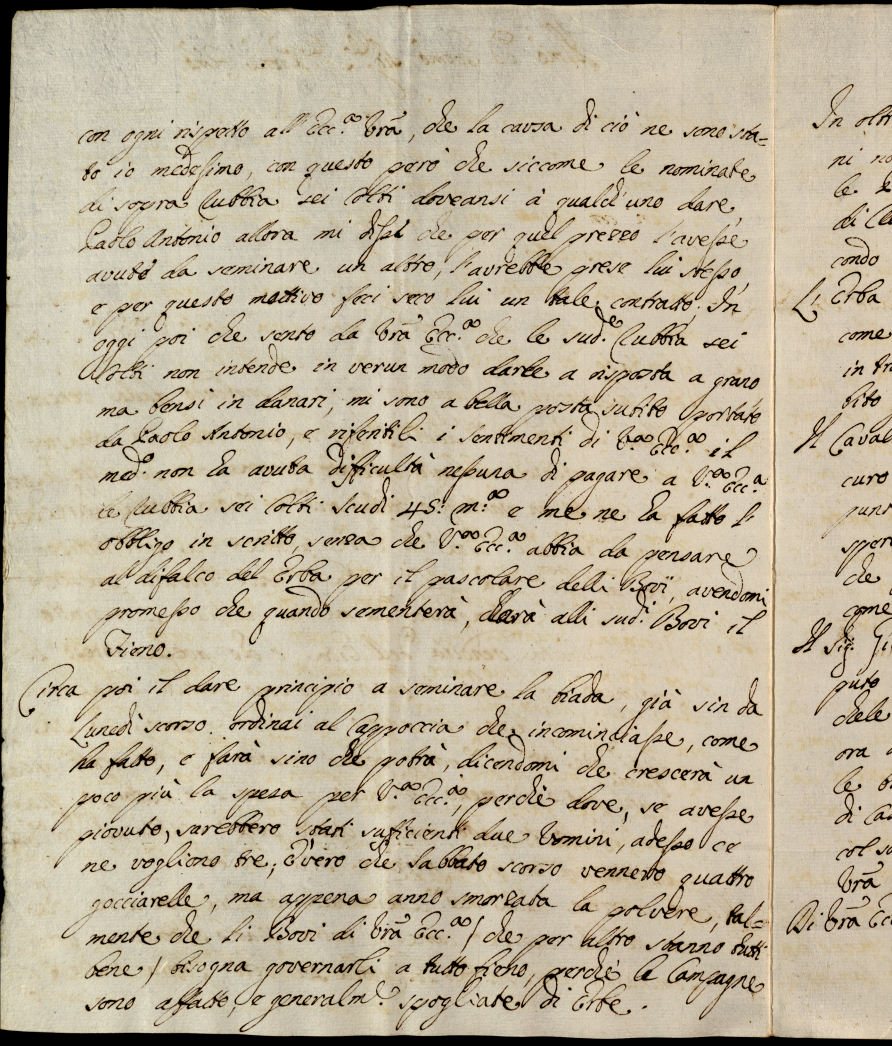 con ogni rispetto all' Ecc.ᵃ Vrã, che la causa di ciò ne sono sta=
to io medesimo, con questo però che siccome le nominate
di sopra Rubbia sei Colti doveansi à qualch'uno dare,
Paolo Antonio allora mi disse che per quel prezzo l'avesse
avuto da seminare un altro, l'avrebbe prese lui stesso
e per questo motivo feci seco lui un tale contratto. In
oggi poi che sento da Vrã Ecc.ᵃ che le sud.ᵉ Rubbia sei
Colti non intende in verun modo darle a risposta a grano
ma bensi in danari, mi sono a bella posta subito portato
da Paolo Antonio, e riferitili i sentimenti di V.ᵃ Ecc.ᵃ il
med.º non ha avuta difficultà nessuna di pagare a V.ᵃ Ecc.ᵃ
le Rubbia sei Colti scudi 45: m.ᵃ e me ne ha fatto l'
obbligo in scritto, senza che V.ᵃ Ecc.ᵃ abbia da pensare
al difalco del Erba per il pascolare delli Bovi, avendomi
promesso che quando sementerà, darà alli sud.ⁱ Bovi il
Fieno.
Circa poi il dare principio a seminare la biada, già sin da
Lunedì scorso ordinai al Cappoccia che incominciasse, come
ha fatto, e farà sino che potrà, dicendomi che crescerà un
poco più la spesa per V.ᵃ Ecc.ᵃ, perche dove, se avesse
piovuto, sarebbero stati sufficienti due Uomini, adesso ce
ne vogliono tre; È vero che Sabbato scorso vennero quattro
gocciarelle, ma appena anno smorzata la polvere, tal=
mente che li Bovi di Vrã Ecc.ᵃ / che per altro stanno tutti
bene / bisogna governarli a tutto fieno, perchè le Campagne
sono affatto, e generalm.ᵉ spogliate di Erbe.
In oltr
ni no
le
di Ca
condo
L' Erba
come
in tr
bito
Il Caval
curo
punt
sper
che
come
Il Sig.
puto
chele
ora
le b
di Ca
col s
Vrã
Di Vrã Ecc